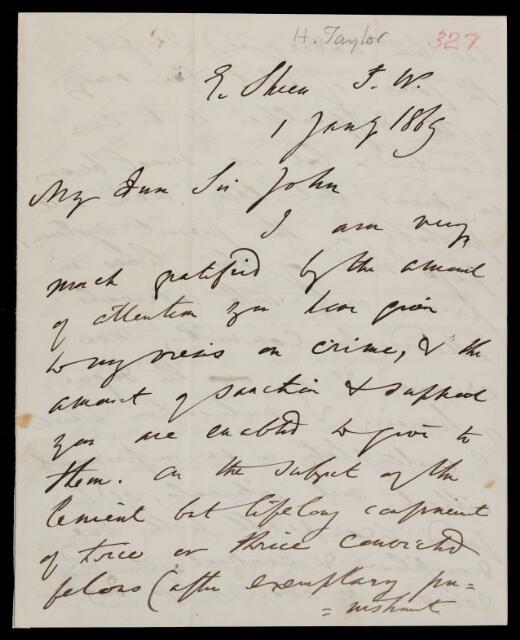 H. Taylor 327
E. Sheen S. W.
1 Jany 1869
My dear Sir John
I am very
much gratified by the amount
of attention you have given
to my views on crime, & the
amount of sanction & support
you are enabled to give to
them. On the subject of the
lenient but lifelong confinement
of twice or thrice convicted
felons (after exemplary pu=
=nishment